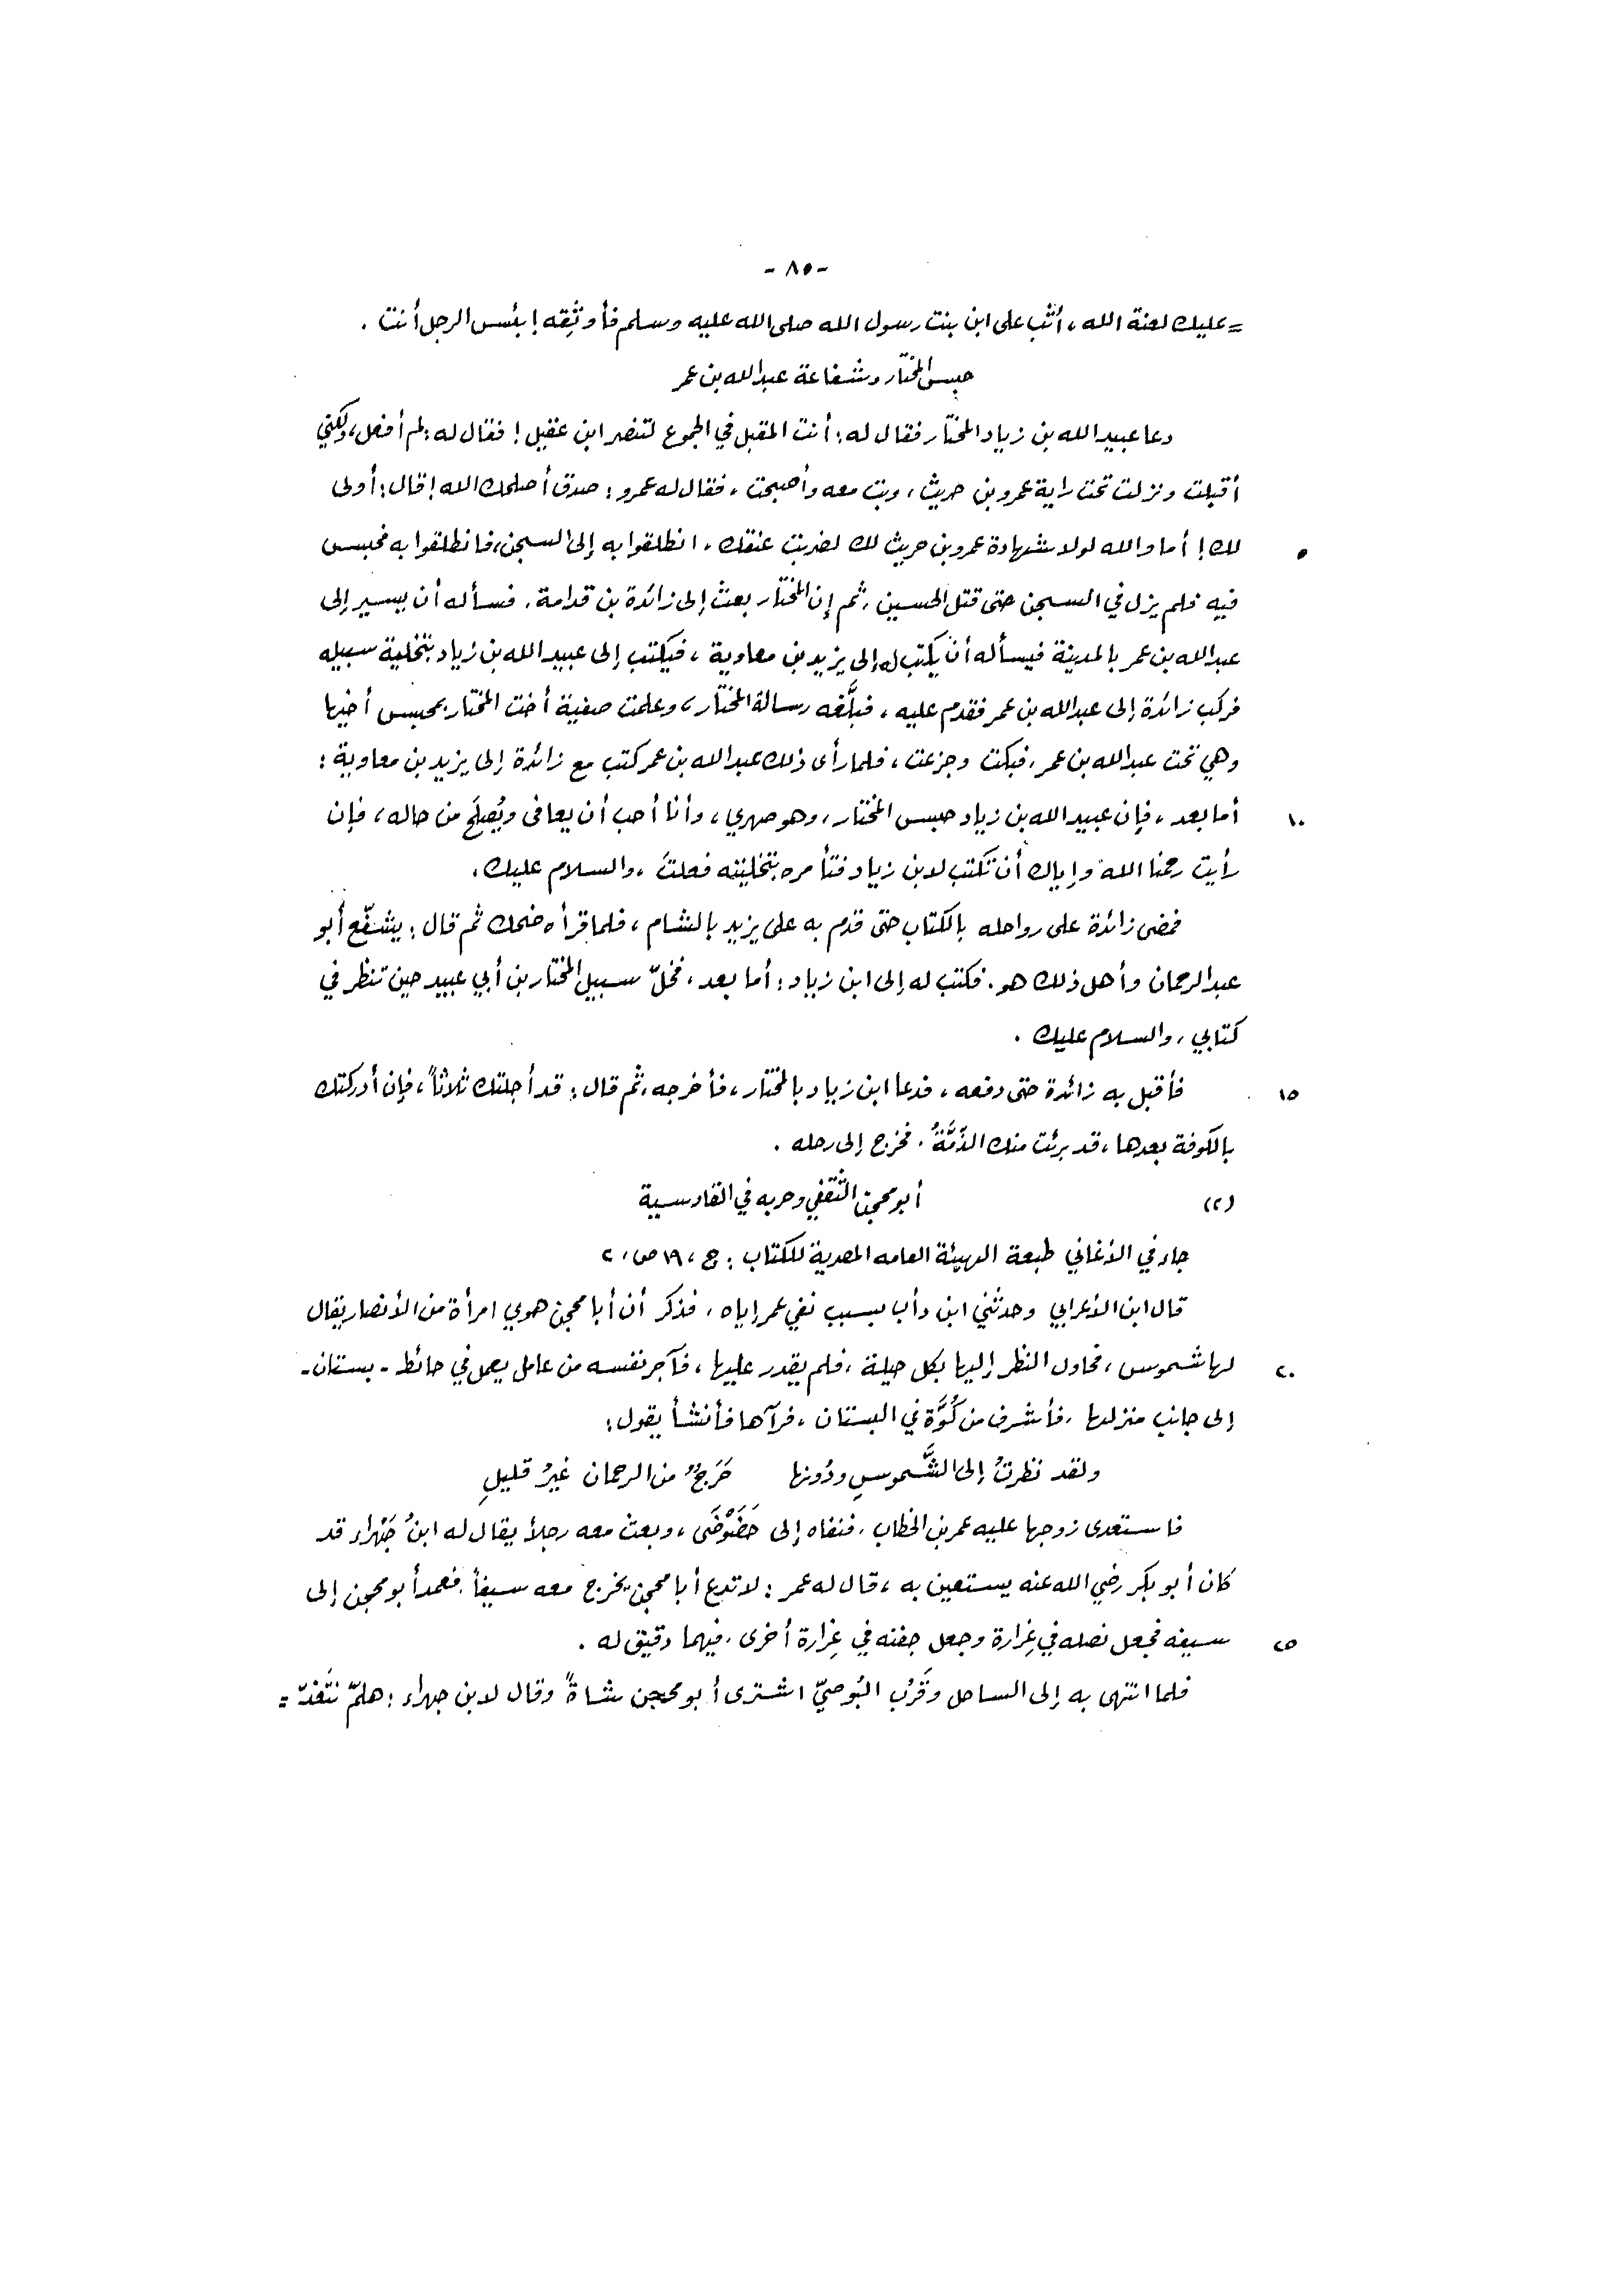 - ٨٥ -
= عليك لعنة الله ، أثب على ابن بنت رسول الله صلى الله عليه وسلم فأوثقه ! بئس الرجل أنت .
حبس المختار وشفاعة عبدالله بن عمر
دعا عبيدالله بن زياد المختار فقال له : أنت المقبل في الجموع لتنصر ابن عقيل ! فقال له : لم أفعل ، ولكني
أقبلت ونزلت تحت راية عمرو بن حريث ، وبت معه وأصبحت ، فقال له عمرو : صدق أصلحك الله ! قال : أولى
٥ لك ! أما والله لولا شهادة عمرو بن حريث لك لضربت عنقك ، انطلقوا به إلى السجن ، فانطلقوا به فحبس
فيه فلم يزل في السجن حتى قتل الحسين ، ثم إن المختار بعث إلى زائدة بن قدامة ، فسأله أن يسير إلى
عبدالله بن عمر بالمدينة فيسأله أن يكتب له إلى يزيد بن معاوية ، فيكتب إلى عبيد الله بن زياد بتخلية سبيله
فركب زائدة إلى عبدالله بن عمر فقدم عليه ، فبلَّغه رسالة المختار ، وعلمت صفية أخت المختار بمحبس أخيها
وهي تحت عبدالله بن عمر ، فبكت وجزعت ، فلما رأى ذلك عبدالله بن عمر كتب مع زائدة إلى يزيد بن معاوية :
١٠ أما بعد ، فإن عبيدالله بن زياد حبس المختار ، وهو صهري ، وأنا أحب أن يعافى ويُصلَح من حاله ، فإن
رأيت رحمنا الله وإياك أن تكتب لابن زياد فتأمره بتخليته فعلتَ ، والسلام عليك ،
فمضى زائدة على رواحله بالكتاب حتى قدم به على يزيد بالشام ، فلما قرأه ضحك ثم قال : يشفّع أبو
عبدالرحمان وأهل ذلك هو . فكتب له إلى ابن زياد : أما بعد ، فخلّ سبيل المختار بن أبي عبيد حين تنظر في
كتابي ، والسلام عليك .
١٥ فأقبل به زائدة حتى دفعه ، فدعا ابن زياد بالمختار ، فأخرجه ، ثم قال : قد أجلتك ثلاثاً ، فإن أدركتك
بالكوفة بعدها ، قد برئت منك الذمَّةُ . فخرج إلى رحله .
(٢) أبو محجن الثقفي وحربه في القادسية
جاء في الأغاني طبعة الهيئة العامه المصرية للكتاب : ج ، ١٩ ص ، ٢
قال ابن الأعرابي وحدثني ابن دأب بسبب نفي عمر إياه ، فذكر أن أبا محجن هوي امرأة من الأنصار يقال
٢٠ لها شموس ، فحاول النظر إليها بكل حيلة ، فلم يقدر عليها ، فآجر نفسه من عامل يعمل في حائط - بستان -
إلى جانب منزلها ، فأشرف من كُوَّة في البستان ، فرآها فأنشأ يقول :
ولقد نظرتُ إلى الشَّموسِ ودُونها حَرَجٌ من الرحمان غيرُ قليلِ
فاستعدى زوجها عليه عمر بن الخطاب ، فنفاه إلى حَضَوْضَى ، وبعث معه رجلاً يقال له ابنُ جَهْراء قد
كان أبو بكر رضي الله عنه يستعين به ، قال له عمر : لا تدع أبا محجن يخرج معه سيفاً . فعمد أبو محجن إلى
٢٥ سيفه فجعل نصله في غِرارة وجعل جفنه في غِرارة أخرى ، فيهما دقيق له .
فلما انتهى به إلى الساحل وقَرُب البُوصيّ اشترى أبو محجن شاةً وقال لابن جهراء : هلمّ نتغدّ =